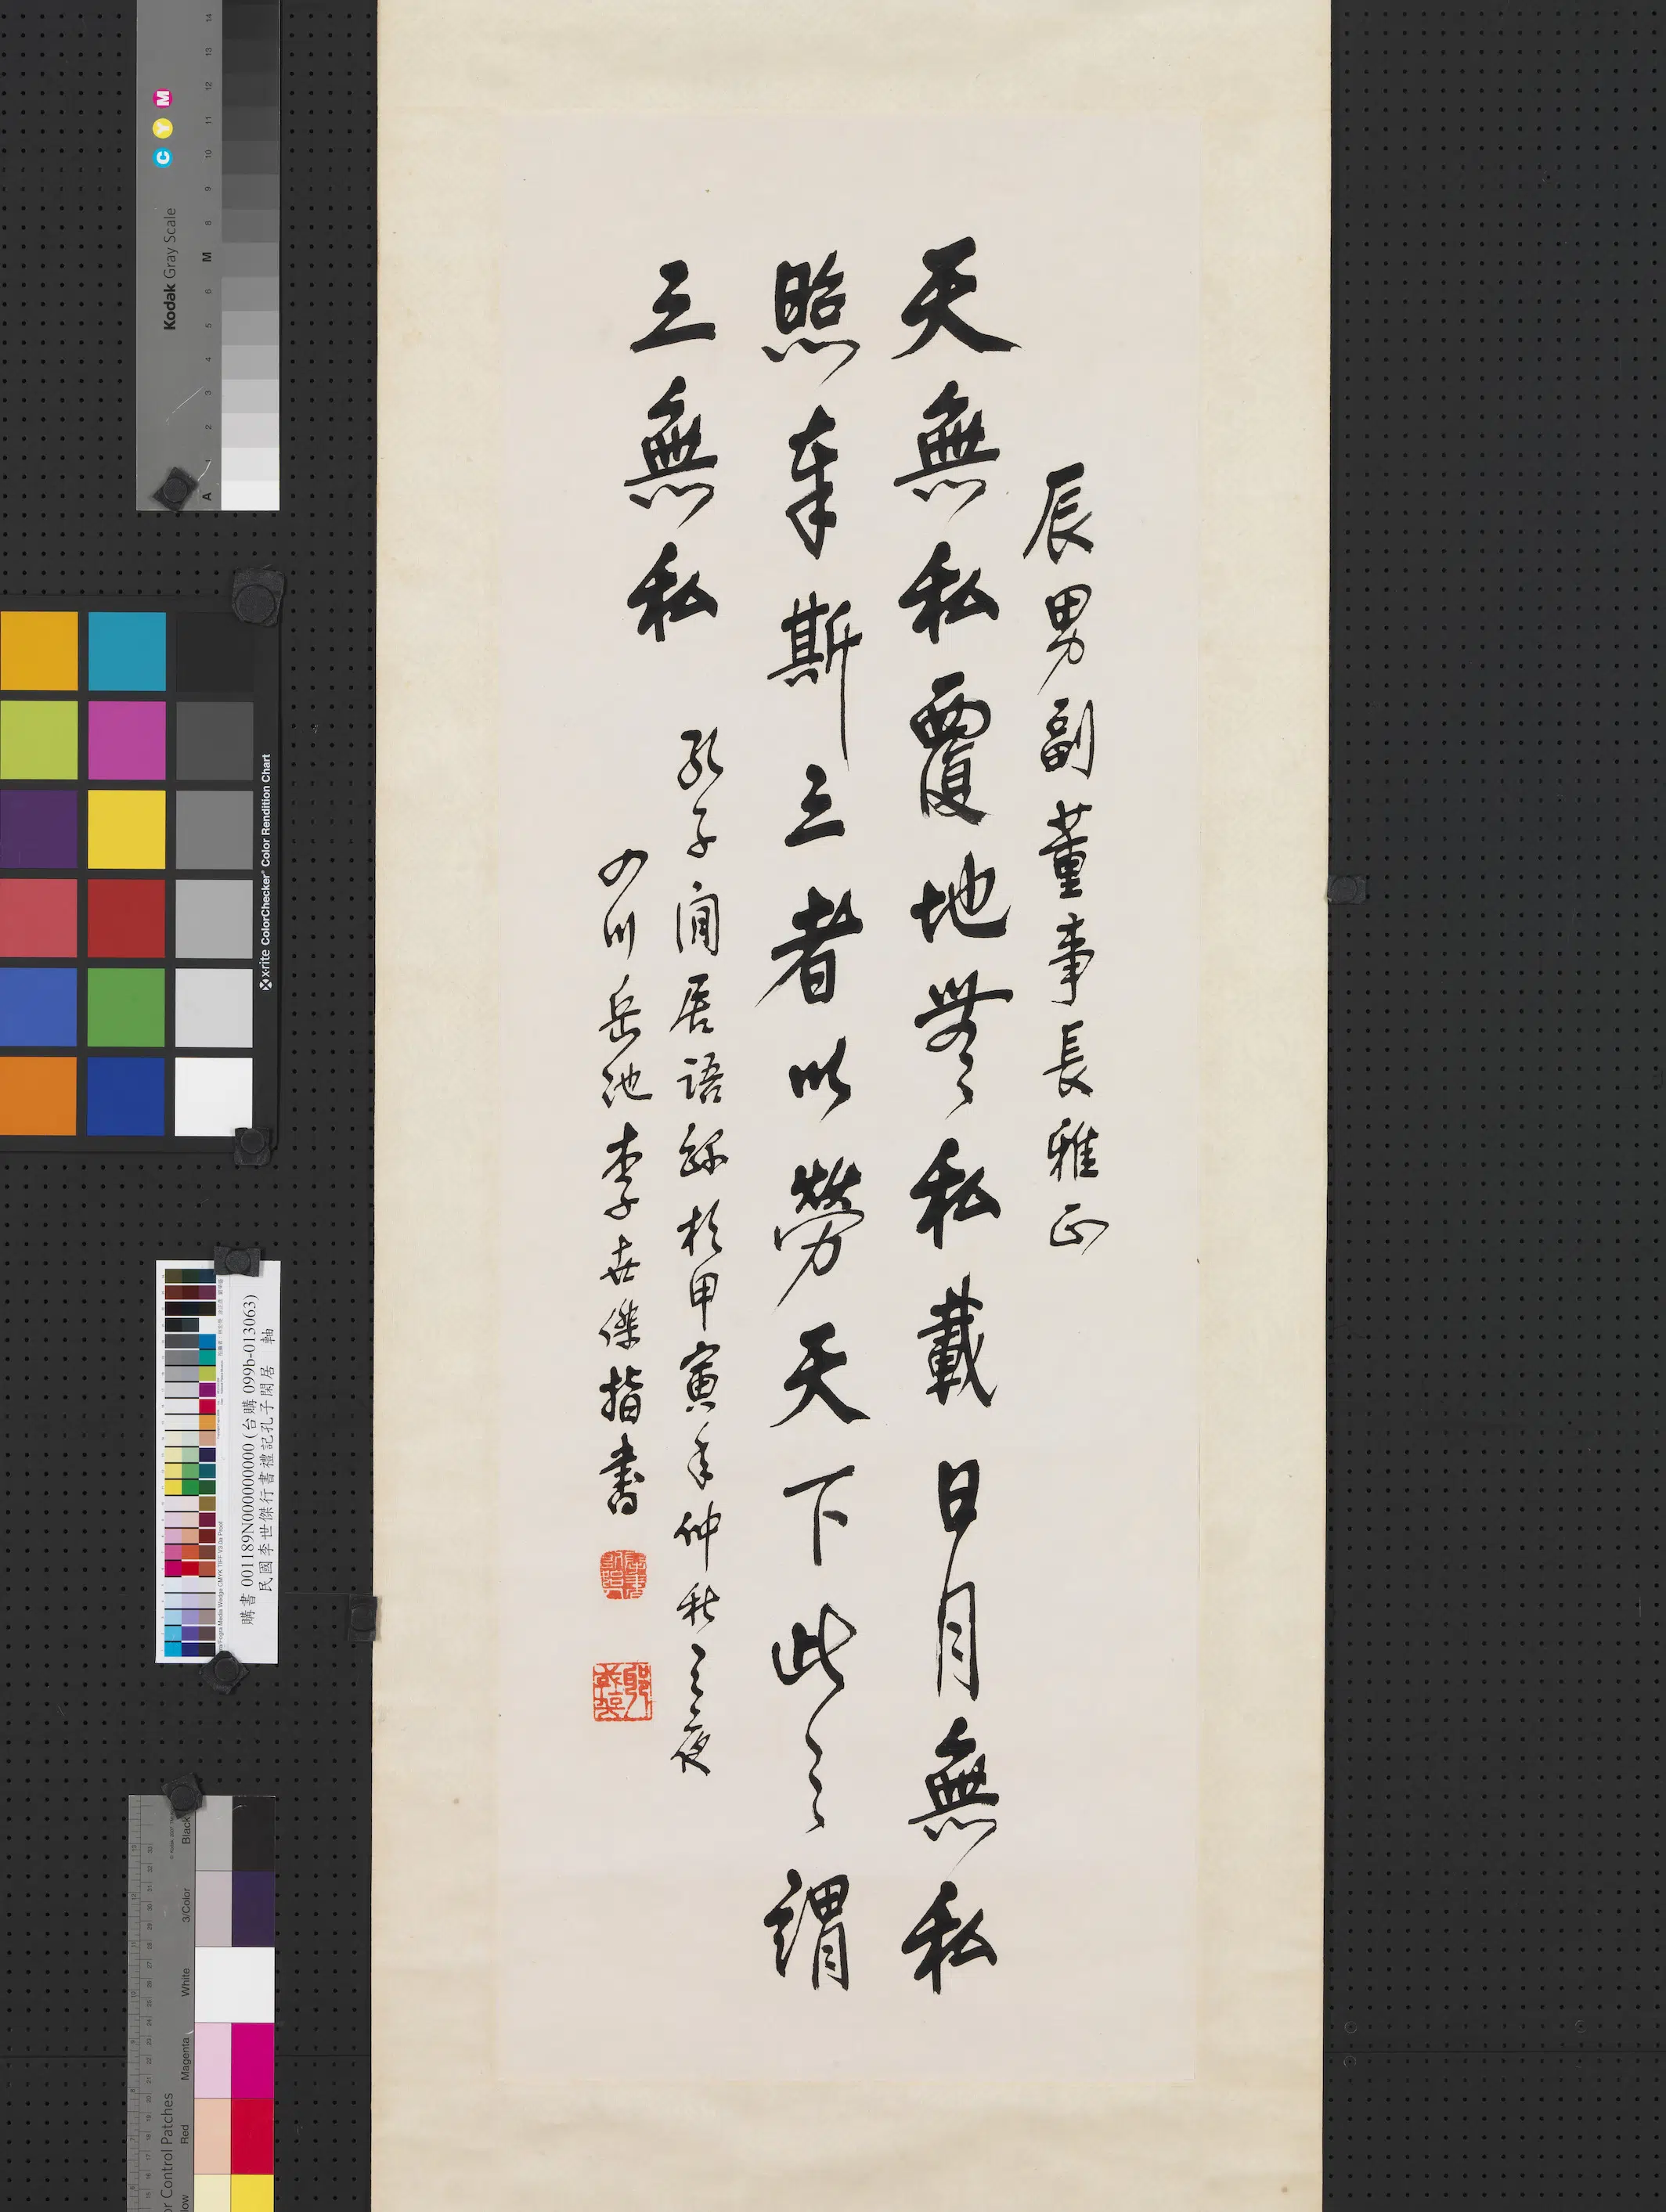 辰男副董事長雅正
天無私覆地無私載日月無私
照奉斯三者以勞天下此之謂
三無私
孔子閒居語錄於甲寅年仲秋之夜
四川岳池李世傑指書
購書 001189N000000000 (台購 099b-013063)
民國李世傑行書禮記孔子閒居 軸
Kodak Gray Scale
C Y M
A 1 2 3 4 5 6 M 8 9 10 11 12 13 14
x-rite ColorChecker Color Rendition Chart
Black
3/Color
White
Magenta
Red
low
or Control Patches